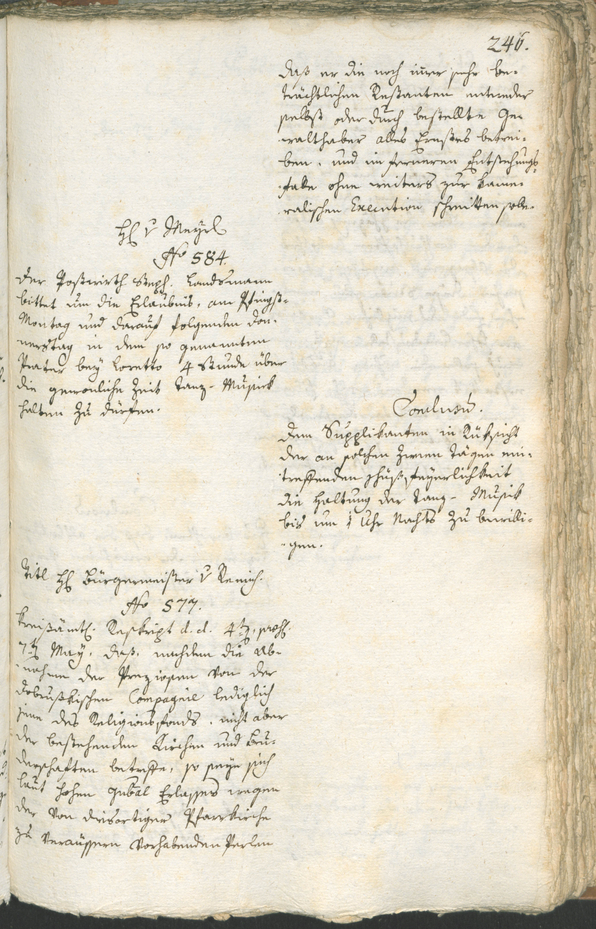 246.
daß er die noch im̅er sehr be-
trächtlichen Restanten entweder
selbst oder durch bestellte Ge-
walthaber alles Ernstes betrei-
ben, und im ferneren Entstehungs-
falle ohne weiters zur Kame-
ralischen Execution schreitten solle.
H: v Mayrl
No 584.
Der Postwirth Steph. Landsmann
bittet um die Erlaubnis, am Pfingst-
Montag und darauf folgenden Don-
nerstag in dem so genannten
Prater bey Loretto 4 Stunde über
die gewonliche Zeit Tanz-Musick
halten zu dürfen.
Conclusũ.
Dem Supplikanten in Rüksicht
der an solchen zween Tägen ein-
treffenden feyerlichkeit
die Haltung der Tanz-Musick
bis um 1 Uhr Nachts zu bewilli-
gen.
Titl H: Bürgermeister v
No 577.
Kreisämtl. Reskript d. d. 4t
7t May, daß, nachdem die Ab-
nahme der Preziosen von der
Dobruskischen Compagnie lediglich
jene des Religionsfonds, nicht aber
der bestehenden Kirchen und Bru-
derschaften betreffe, so seye sich
laut hohen Gubal Erlasses wegen
der von dieortiger Pfarrkirche
zu veräussern vorhabenden Perlen